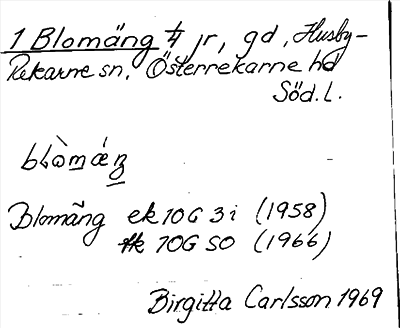 1 Blomäng 1/4 jr, gd, Husby-
Rekarne sn, Österrekarne hd
Söd. L.
blòmáŋ
Blomäng ek 10G 3i (1958)
tk 10G SO (1966)
Birgitta Carlsson 1969